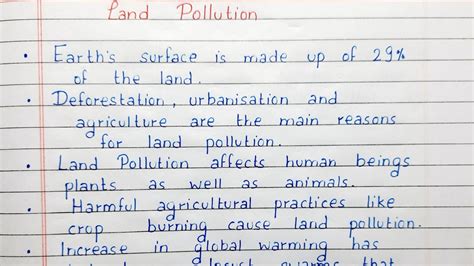 Land Pollution
• Earth's surface is made up of 29%
of the land.
• Deforestation, urbanisation and
agriculture are the main reasons
for land pollution.
• Land Pollution affects human beings
plants as well as animals.
• Harmful agricultural practices like
crop burning cause land pollution.
• Increase in global warming has
locust swarms that